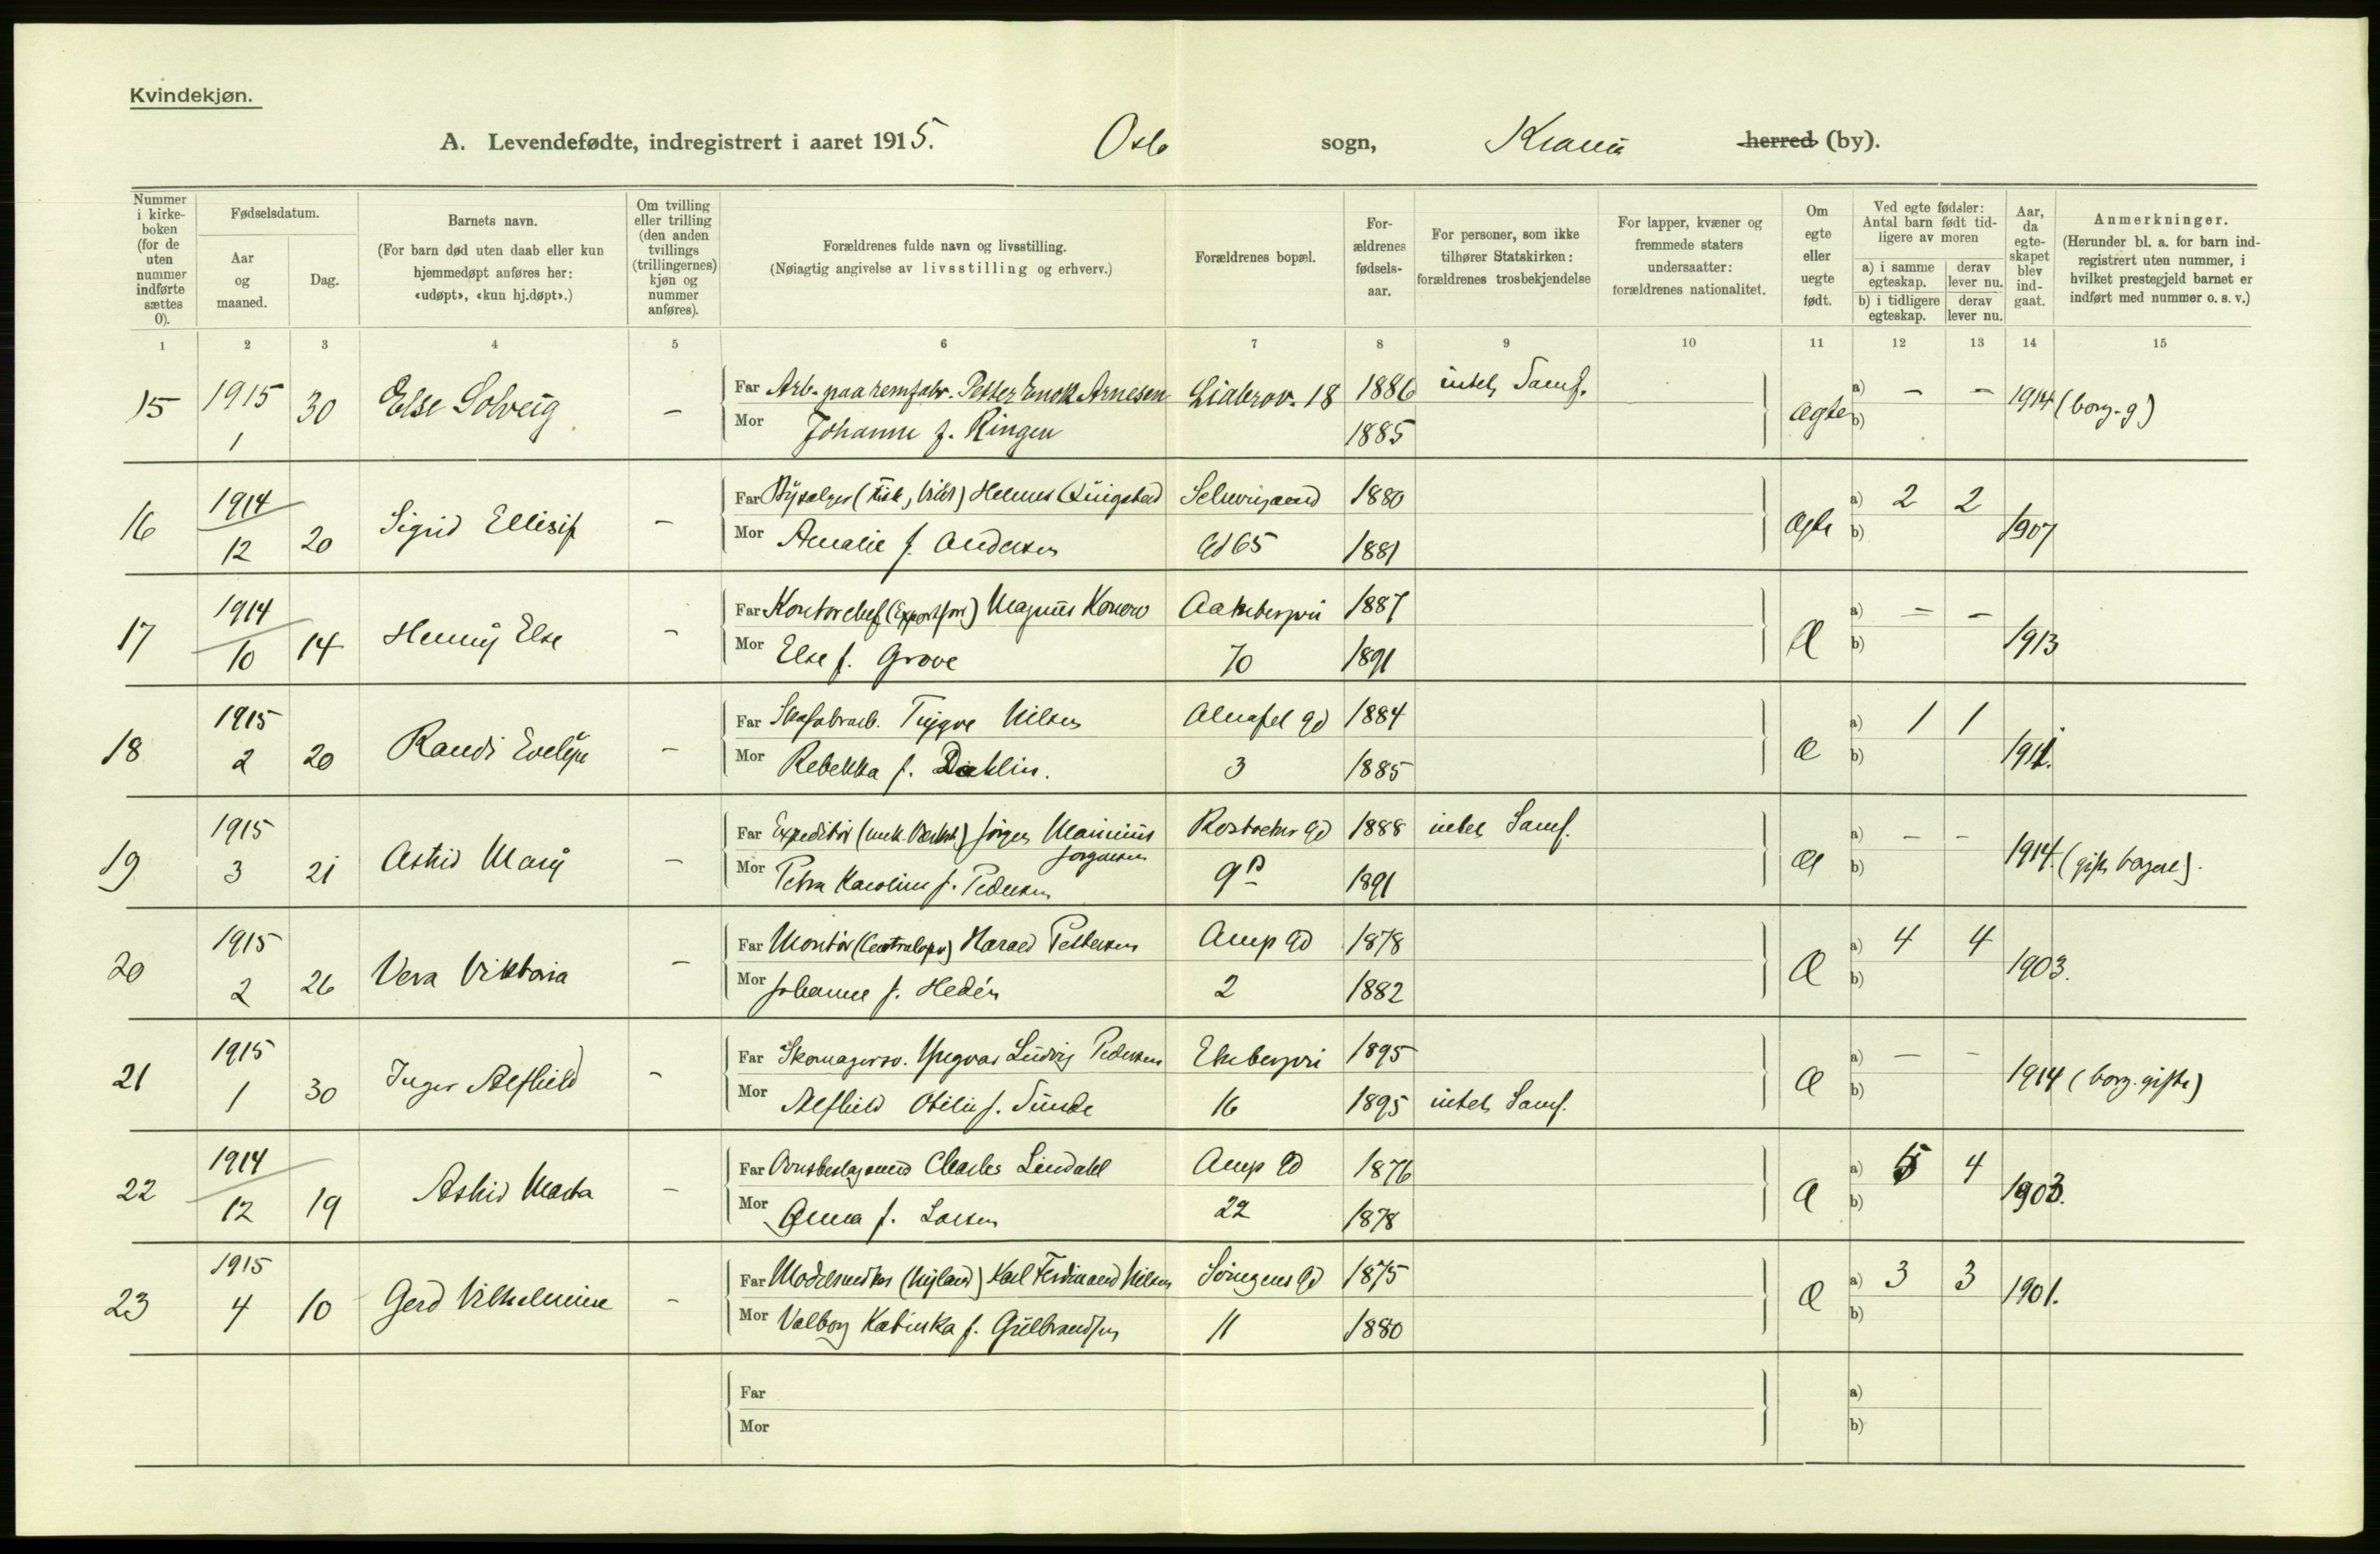 Kvindekjøn.
A. Levendefødte, indregistrert i aaret 1915. Oslo sogn, Krania herred (by).
Nummer i kirke-boken (for de uten nummer indførte sættes 0).
Fødselsdatum.
Aar og maaned.
Dag.
Barnets navn.
(For barn død uten daab eller kun hjemmedøpt anføres her: «udøpt», «kun hj.døpt».)
Om tvilling eller trilling (den anden tvillings (trillingernes) kjøn og nummer anføres).
Forældrenes fulde navn og livsstilling.
(Nøiagtig angivelse av livsstilling og erhverv.)
Forældrenes bopæl.
For-ældrenes fødsels-aar.
For personer, som ikke tilhører Statskirken: forældrenes trosbekjendelse
For lapper, kvæner og fremmede staters undersaatter: forældrenes nationalitet.
Om egte eller uegte født.
Ved egte fødsler: Antal barn født tid-ligere av moren
a) i samme egteskap.
derav lever nu.
b) i tidligere egteskap.
derav lever nu.
Aar, da egte-skapet blev ind-gaat.
Anmerkninger.
(Herunder bl. a. for barn ind-registrert uten nummer, i hvilket prestegjeld barnet er indført med nummer o. s. v.)
1 2 3 4 5 6 7 8 9 10 11 12 13 14 15
15 1915 1 30 Else Solveig –
Far Arb. paa remfabr. Petter Enok Arnesen Liabrov. 18 1886 intet Samf.
Mor Johanne f. Ringen 1885
ægte a) – – b) 1914 (borg. g)
16 1914 12 20 Sigrid Ellisif –
Far Bysælger (fisk, vildt) Helmer Schweigaard 1880
Mor Amalie f. Andersen Gd 65 1881
ægte a) 2 2 b) 1907
17 1914 10 14 Henny Else –
Far Kontorchef (Exportforr.) Magnus Konow Aakebergvei 1887
Mor Else f. Grove 70 1891
Æ a) – – b) 1913
18 1915 2 20 Randi Evelyn –
Far Skofabrarb. Trygve Nilsen Alnafet gd 1884
Mor Rebekka f. Dahlin. 3 1885
Æ a) 1 1 b) 1911.
19 1915 3 21 Astrid Mary –
Far Expeditør (mek. Værkst.) Jørgen Marinius Jørgensen Rostocker gd 1888 intet Samf.
Mor Petra Karoline f. Pedersen 9 1891
Æ a) – – b) 1914. (gift borgerl).
20 1915 2 26 Vera Viktoria –
Far Montør (Centralopv) Harald Pettersen Amp gd 1878
Mor Johanne f. Hedén 2 1882
Æ a) 4 4 b) 1903.
21 1915 1 30 Inger Alfhild –
Far Skomagersv. Yngvar Ludvig Pedersen Ekebergvei 1895
Mor Alfhild Otilie f. Sunde 16 1895 intet Samf.
Æ a) – – b) 1914 (borg. gifte)
22 1914 12 19 Astrid Marta –
Far Ovnsbeslagsmed Charles Lindahl Amp gd 1876
Mor Anna f. Larsen 22 1878
Æ a) 5 4 b) 1903.
23 1915 4 10 Gerd Vilhelmine –
Far Modelsnedker (Nyland) Karl Ferdinand Nilsen Sørengens gd 1875
Mor Valborg Katinka f. Gulbrandsen 11 1880
Æ a) 3 3 b) 1901.
Far
Mor
a)
b)